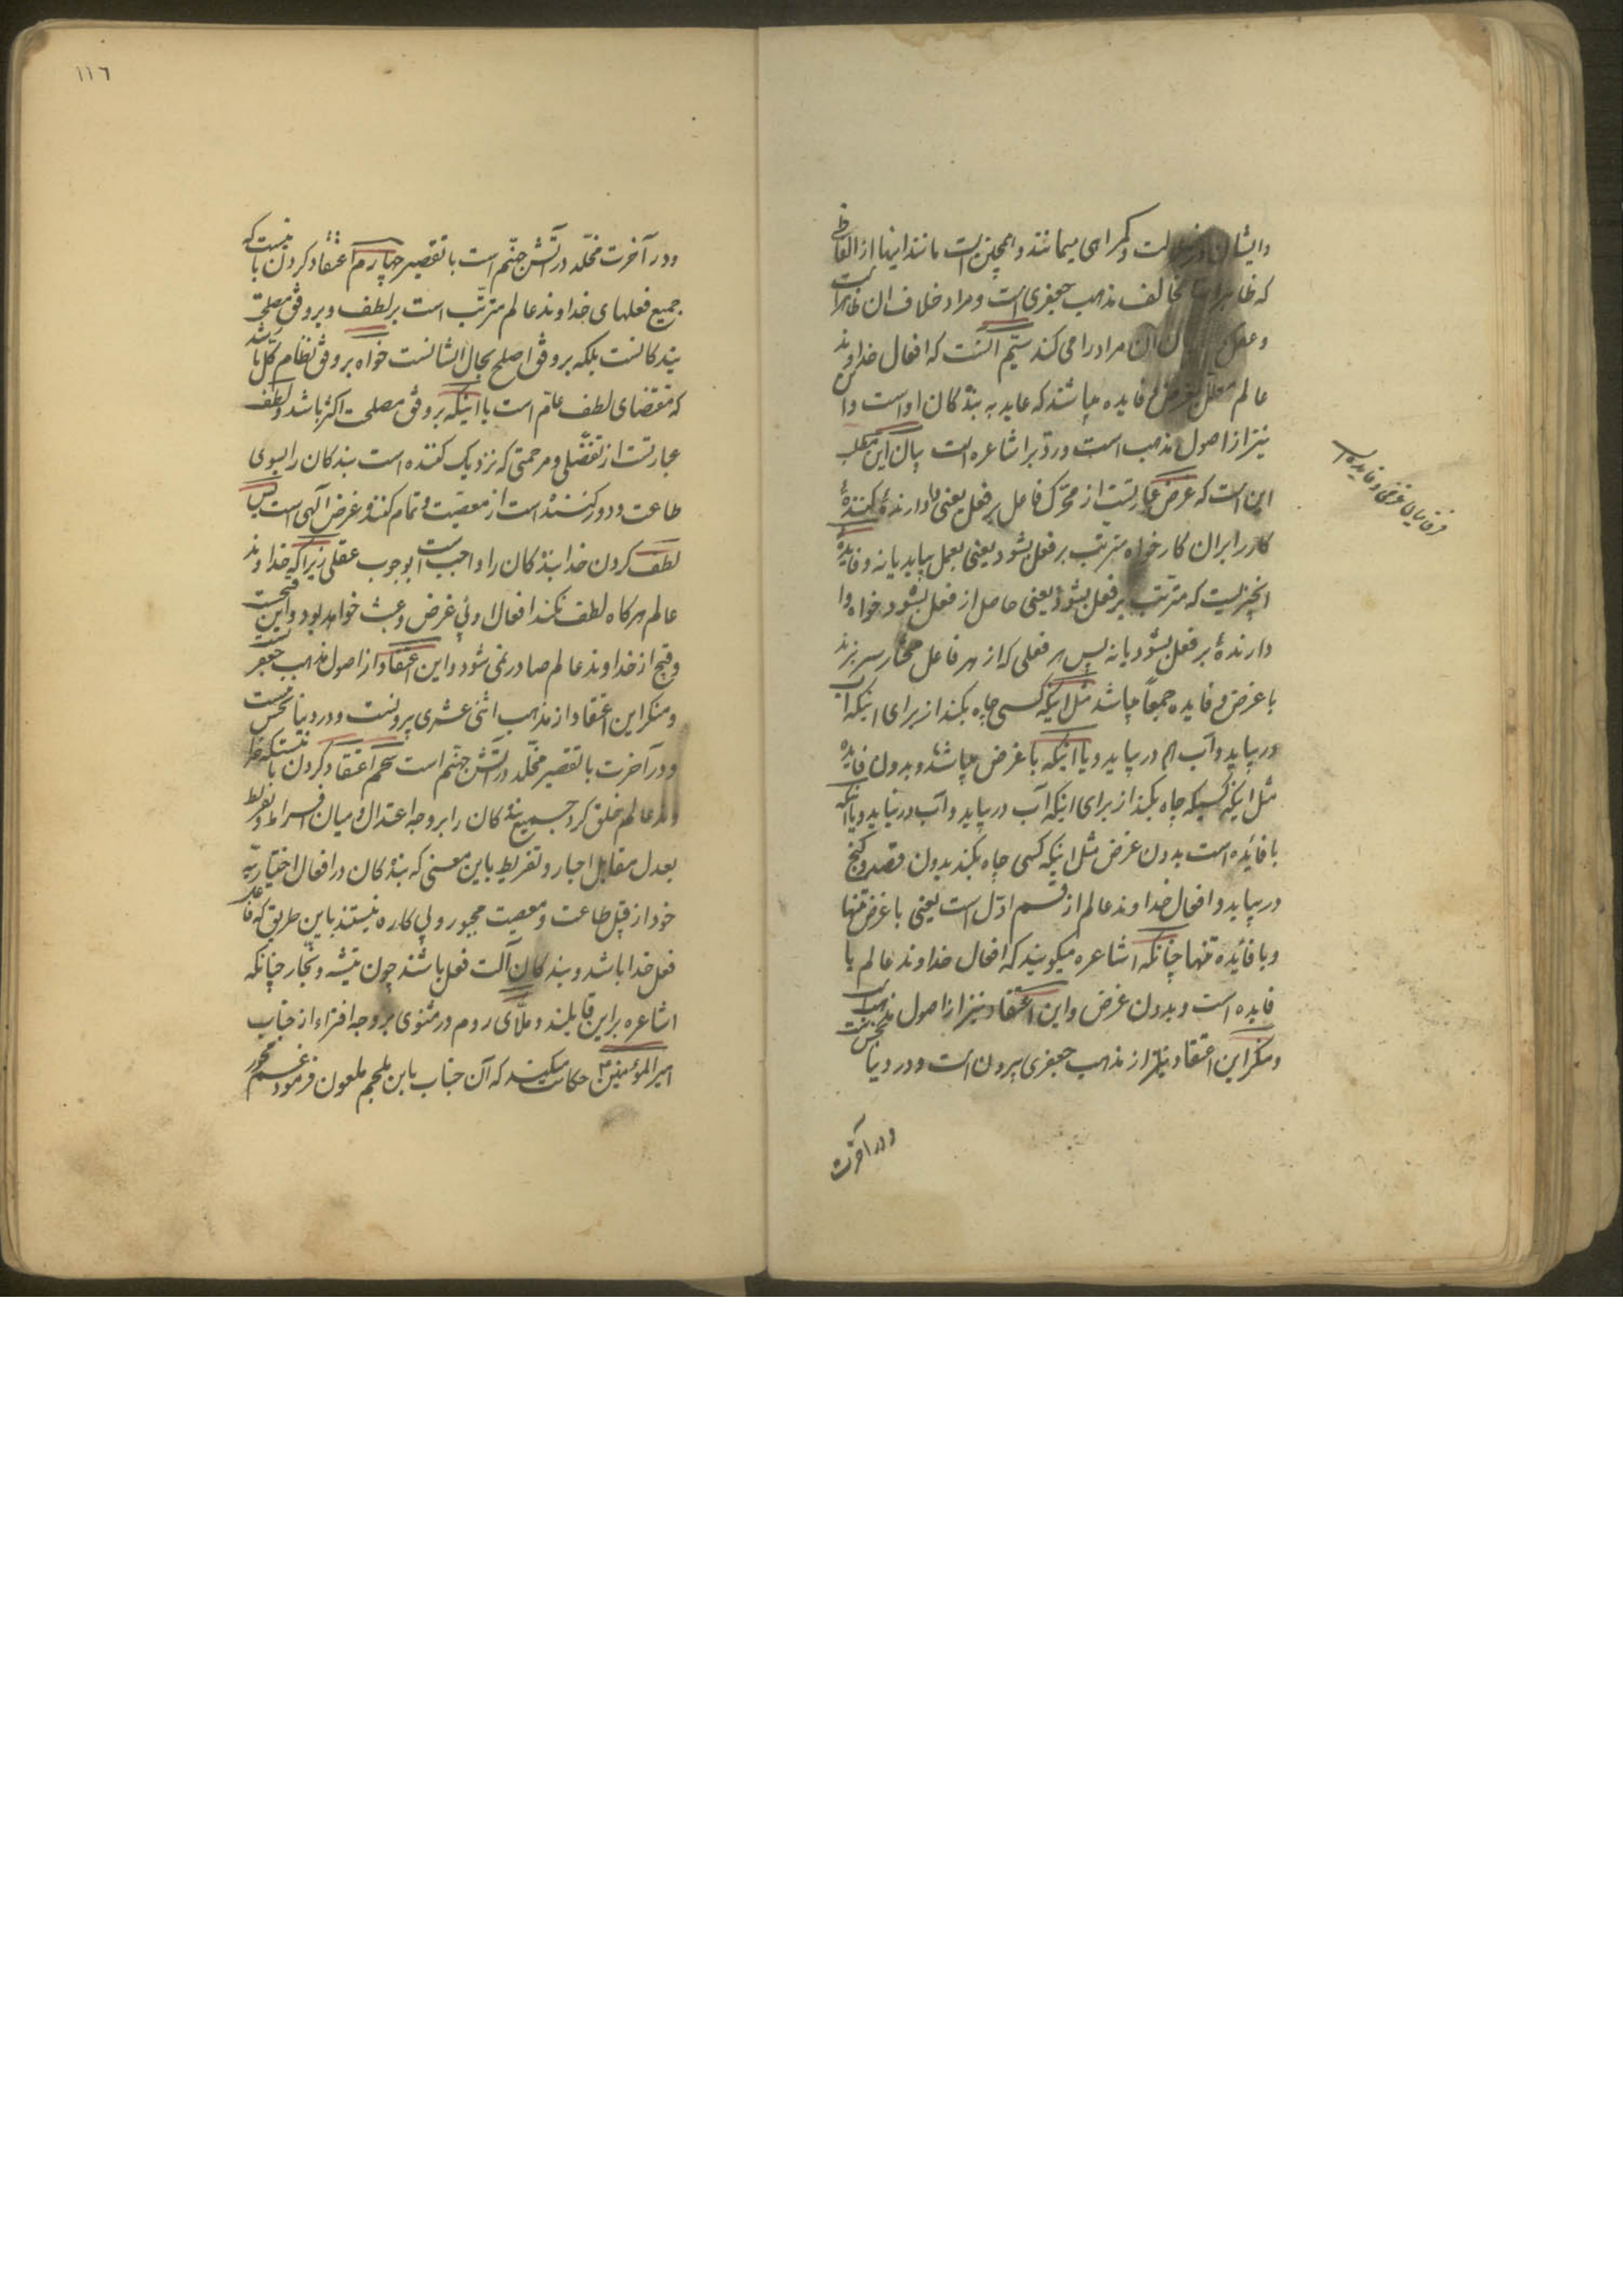 وایشان در ضلالت و گمراهی میمانند و همچنین است مانند اینها از الفاظی
که ظاهر اینها مخالف مذهب جعفری است و مراد خلاف ان ظاهر است
و عقل ان مراد را می کند سیّم انست که افعال خداوند
عالم معلل بغرض و فایده میباشند که عاید به بندکان او است و این
نیز از اصول مذهب است و ردّ بر اشاعره است بیان این مطلب
این است که غرض عبارتست از محرّک فاعل بر فعل یعنی وادارندهٔ کنندهٔ
کار را بر ان کار خواه مترتب بر فعل بشود یعنی بعمل بیاید یا نه و فایدهٔ
انچیزیست که مترتب بر فعل بشود یعنی حاصل از فعل بشود خواه وا
دارندهٔ بر فعل بشود یا نه پس هر فعلی که از هر فاعل مختار سر بزند
با غرض و فایده جمیعاً میباشد مثل اینکه کسی چاه بکند از برای اینکه آب
در بیاید و آب هم در بیاید و یا اینکه با غرض میباشد و بدون فایده
مثل اینکه کسیکه چاه بکند از برای اینکه آب در بیاید و آب در نیاید و یا اینکه
با فائده است بدون غرض مثل اینکه کسی چاه بکند بدون قصد و کنج
در بیاید و افعال خداوند عالم از قسم اوّل است یعنی با غرض تنها
و با فائده تنها چنانکه اشاعره میکویند که افعال خداوند عالم با
فایده است و بدون غرض و این اعتقاد نیز از اصول مذهب است
و منکر این اعتقاد نیز از مذهب جعفری بیرون است و در دنیا نجس است
و در آخرت
فرق میان غرض و فایده
۱۱٦
و در آخرت مخلّد در آتش جهنّم است با تقصیر چهارم اعتقاد کردن باینست که
جمیع فعلهای خداوند عالم مترتّب است بر لطف و بر وفق مصلحت
بندکانست بلکه بر وفق اصلح بحال ایشانست خواه بر وفق نظام کلّ باشد
که مقتضای لطف عامّ است یا اینکه بر وفق مصلحت اکثر باشد و لطف
عبارتست از تفضّلی و مرحمتی که نزدیک کننده است بندکان را بسوی
طاعت و دور کننده است از معصیت و تمام کننده غرض آلهی است پس
لطف کردن خدا بندکان را واجب است بوجوب عقلی زیراکه خداوند
عالم هرکاه لطف نکند افعال او بی غرض و عبث خواهد بود و این قبیح است
و قبح از خداوند عالم صادر نمی شود و این اعتقاد از اصول مذهب جعفریست
و منکر این اعتقاد از مذهب اثنی عشری بیرونست و در دنیا نجس است
و در آخرت با تقصیر مخلّد در آتش جهنّم است پنجم اعتقاد کردن باینستکه خدا
وند عالم خلق کرد جمیع بندکان را بر وجه اعتدال و میان افراط و تفریط
بعدل مقابل اجبار و تفریط باین معنی که بندکان در افعال اختیاریّه
خود از قبیل طاعت و معصیت مجبور و بی کاره نیستند باین طریق که فاعل
فعل خدا باشد و بندکان آلت فعل باشند چون تیشه و نجّار چنانکه
اشاعره بر این قایلند و ملّای روم در مثنوی بر وجه افتراء از جناب
امیرالمؤمنین ع حکایت میکند که آن جناب بابن ملجم ملعون فرمود غم مخور